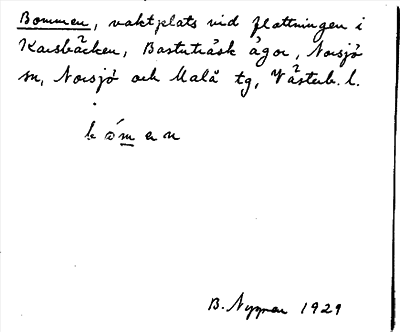 Bommen, vaktplats vid flottningen i
Karsbäcken, Bastuträsk ägor, Norsjö
sn, Norsjö och Malå tg, Västerb. l.
B. Nyman 1929